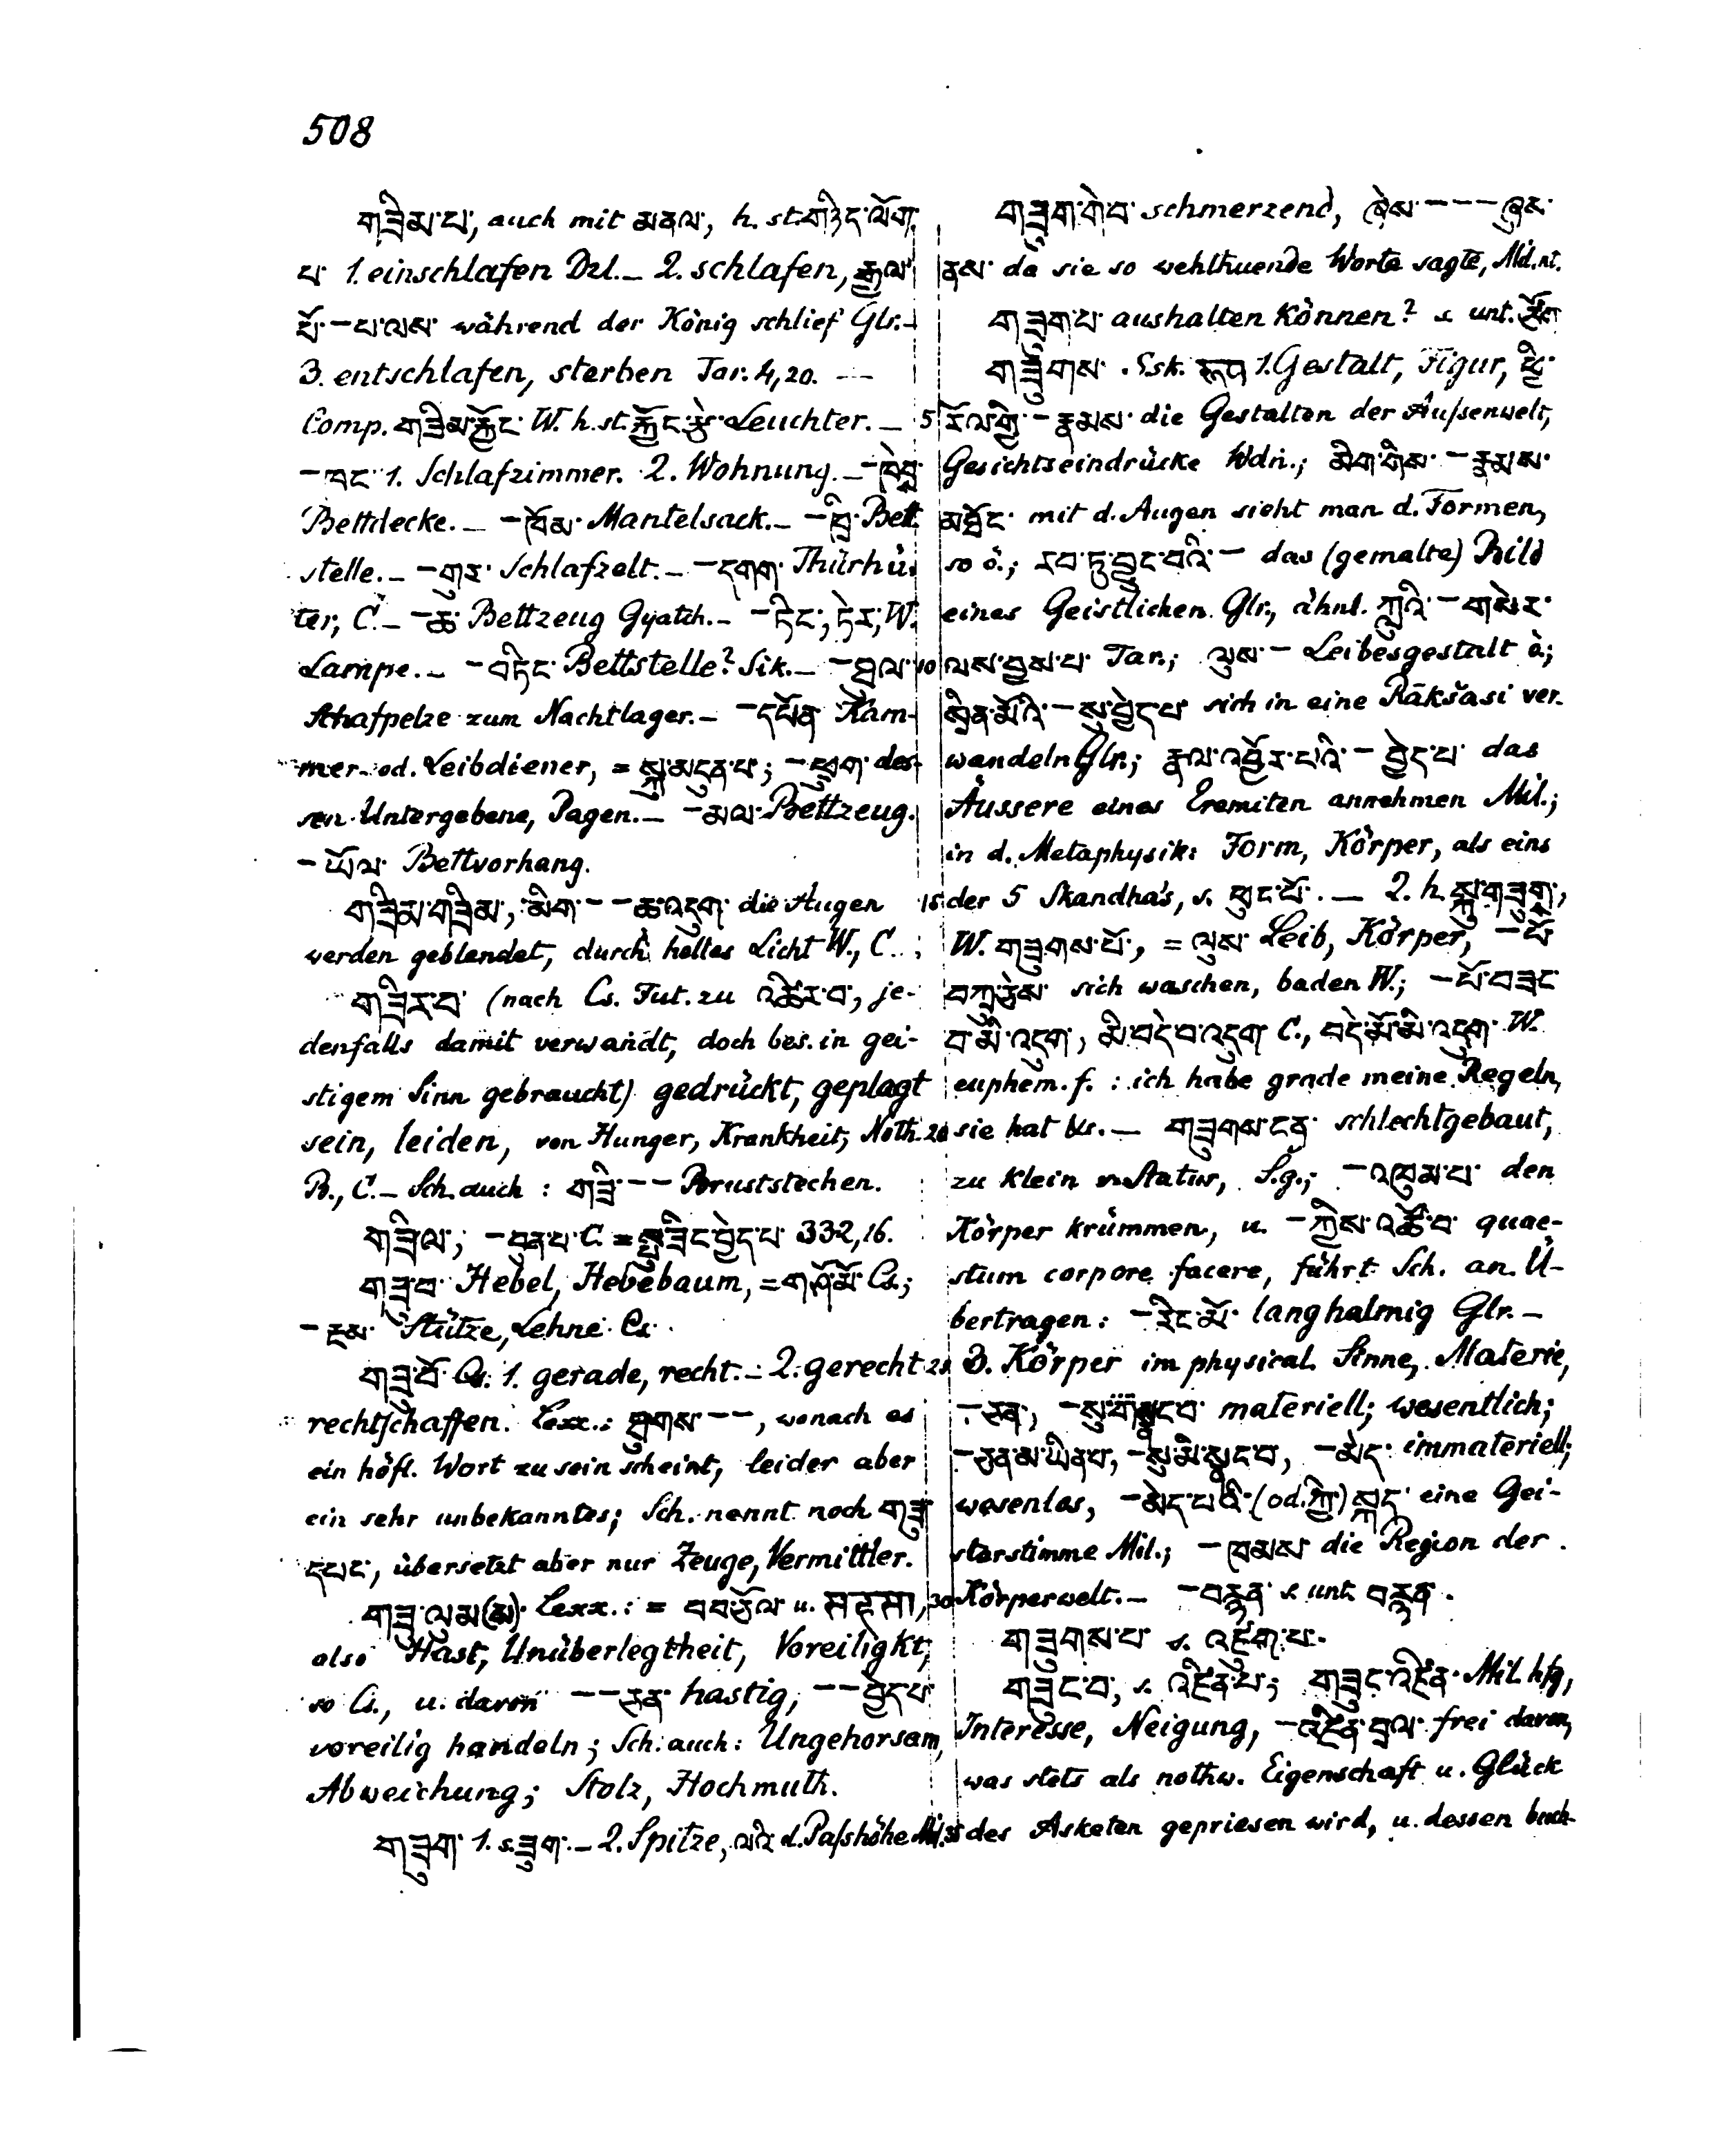 508
གཟིམ་པ་, auch mit མནལ་, h. st. གཉིད་ལོག་
པ་ 1. einschlafen Dzl. – 2. schlafen, རྒྱལ་
པོ་ – པ་ལས་ während der König schlief Glr. –
3. entschlafen, sterben Tar. 4, 20. –
Comp. གཟིམ་རྐྱོང་ W. h. st. རྐྱོང་རྩེ་ Leuchter. –
– ཁང་ 1. Schlafzimmer. 2. Wohnung. – – ཁེབ་
Bettdecke. – – ཁོམ་ Mantelsack. – – ཁྲི་ Bett
stelle. – – གུར་ Schlafzelt. – – དགག་ Thürhü-
ter, C. – – ཆ་ Bettzeug Gyatch. – – ཏིང་, ཏེར་, W.
Lampe. – – བཏིང་ Bettstelle? Sik. – – ཐུལ་
Schafpelze zum Nachtlager. – – དཔོན་ Kam-
mer- od. Leibdiener, = སྐུ་མདུན་པ་; – ཕྲུག་ des-
sen Untergebene, Pagen. – – མལ་ Bettzeug.
– ཡོལ་ Bettvorhang.
གཟིམ་གཟིམ་, མིག་ – – ཆ་འདུག་ die Augen
werden geblendet, durch helles Licht W., C.
གཟིར་བ་ (nach Cs. Fut. zu འཚིར་བ་, je-
denfalls damit verwandt, doch bes. in gei-
stigem Sinn gebraucht) gedrückt, geplagt
sein, leiden, von Hunger, Krankheit, Noth.
B., C. – Sch. auch: གཟི་ – – Bruststechen.
གཟིལ་, – བུན་པ་ C. = སྤུ་ཟིང་བྱེད་པ་ 332, 16.
གཟུ་བ་ Hebel, Hebebaum, = གཤོ་མོ་ Cs.;
– རྔམ་ Stütze, Lehne Cs.
གཟུ་བོ་ Cs. 1. gerade, recht. – 2. gerecht
rechtschaffen. Lexx.: ཐུགས་ – –, wonach es
ein höfl. Wort zu sein scheint, leider aber
ein sehr unbekanntes; Sch. nennt noch གཟུ་
དཔང་, übersetzt aber nur Zeuge, Vermittler.
གཟུ་ལུམ(ས)་ Lexx.: = བབ་ཅོལ་ u. साहसा,
also Hast, Unüberlegtheit, Voreiligkt,
so Cs., u. davon – – ཅན་ hastig, – – བྱེད་པ་
voreilig handeln; Sch. auch: Ungehorsam,
Abweichung; Stolz, Hochmuth.
གཟུག་ 1. s. ཟུག་. – 2. Spitze, ལའི་ d. Paßhöhe Mil.
གཟུག་གེ་བ་ schmerzend, ཞེས་ – – – ཞུས་
ནས་ da sie so wehlthuende Worte sagte, Mld. nt.
གཟུག་པ་ aushalten können? s. unt.
གཟུགས་ Ssk. रूप 1. Gestalt, Figur, ཕྱི་
རོལ་གྱི་ – རྣམས་ die Gestalten der Außenwelt,
Gesichtseindrücke Wdn.; མིག་གིས་ – རྣམས་
མཐོང་ mit d. Augen sieht man d. Formen,
so ö.; རབ་ཏུ་བྱུང་བའི་ – das (gemalte) Bild
eines Geistlichen Glr., ähnl. ཀླུའི་ – གསེར་
ལས་བྱས་པ་ Tar.; ལུས་ – Leibesgestalt ö.;
སྲིན་མོའི་ – སུ་བྱེད་པ་ sich in eine Rākšasi ver-
wandeln Glr.; རྣལ་འབྱོར་པའི་ – བྱེད་པ་ das
Äussere eines Eremiten annehmen Mil.;
in d. Metaphysik: Form, Körper, als eins
der 5 Skandha's, s. ཕུང་པོ་. – 2. h. སྐུ་གཟུག་,
W. གཟུགས་པོ་, = ལུས་ Leib, Körper, – པོ་
བཀྲུ་ཅེས་ sich waschen, baden W.; – པོ་བཟང་
བ་མི་འདུག་, མི་བདེ་བ་འདུག་ C., བདེ་མོ་མི་འདུག་ W.
euphem. f.: ich habe grade meine Regeln,
sie hat etc. – གཟུགས་ངན་ schlechtgebaut,
zu klein v. Statur, S.g.; – འཁུམ་པ་ den
Körper krümmen, u. – ཀྱིས་འཚོ་བ་ quae-
stum corpore facere, führt Sch. an. Ü-
bertragen: – རིང་མོ་ langhalmig Glr. –
3. Körper im physical. Sinne, Materie,
– ཅན་, – སུ་སྣང་བ་ materiell; wesentlich;
– ཅན་མ་ཡིན་པ་, – སུ་མི་སྣང་བ་, – མེད་ immateriell;
wesenlos, – མེད་པའི་ (od. ཀྱི་) སྐད་ eine Gei-
sterstimme Mil.; – ཁམས་ die Region der
Körperwelt. – – བརྙན་ s. unt. བརྙན་.
གཟུགས་པ་ s. འཛུག་པ་.
གཟུང་བ་, s. འཛིན་པ་; གཟུང་འཛིན་ Mil. hfg,
Interesse, Neigung, – འཛིན་བྲལ་ frei davon,
was stets als nothw. Eigenschaft u. Glück
des Asketen gepriesen wird, u. dessen buch-